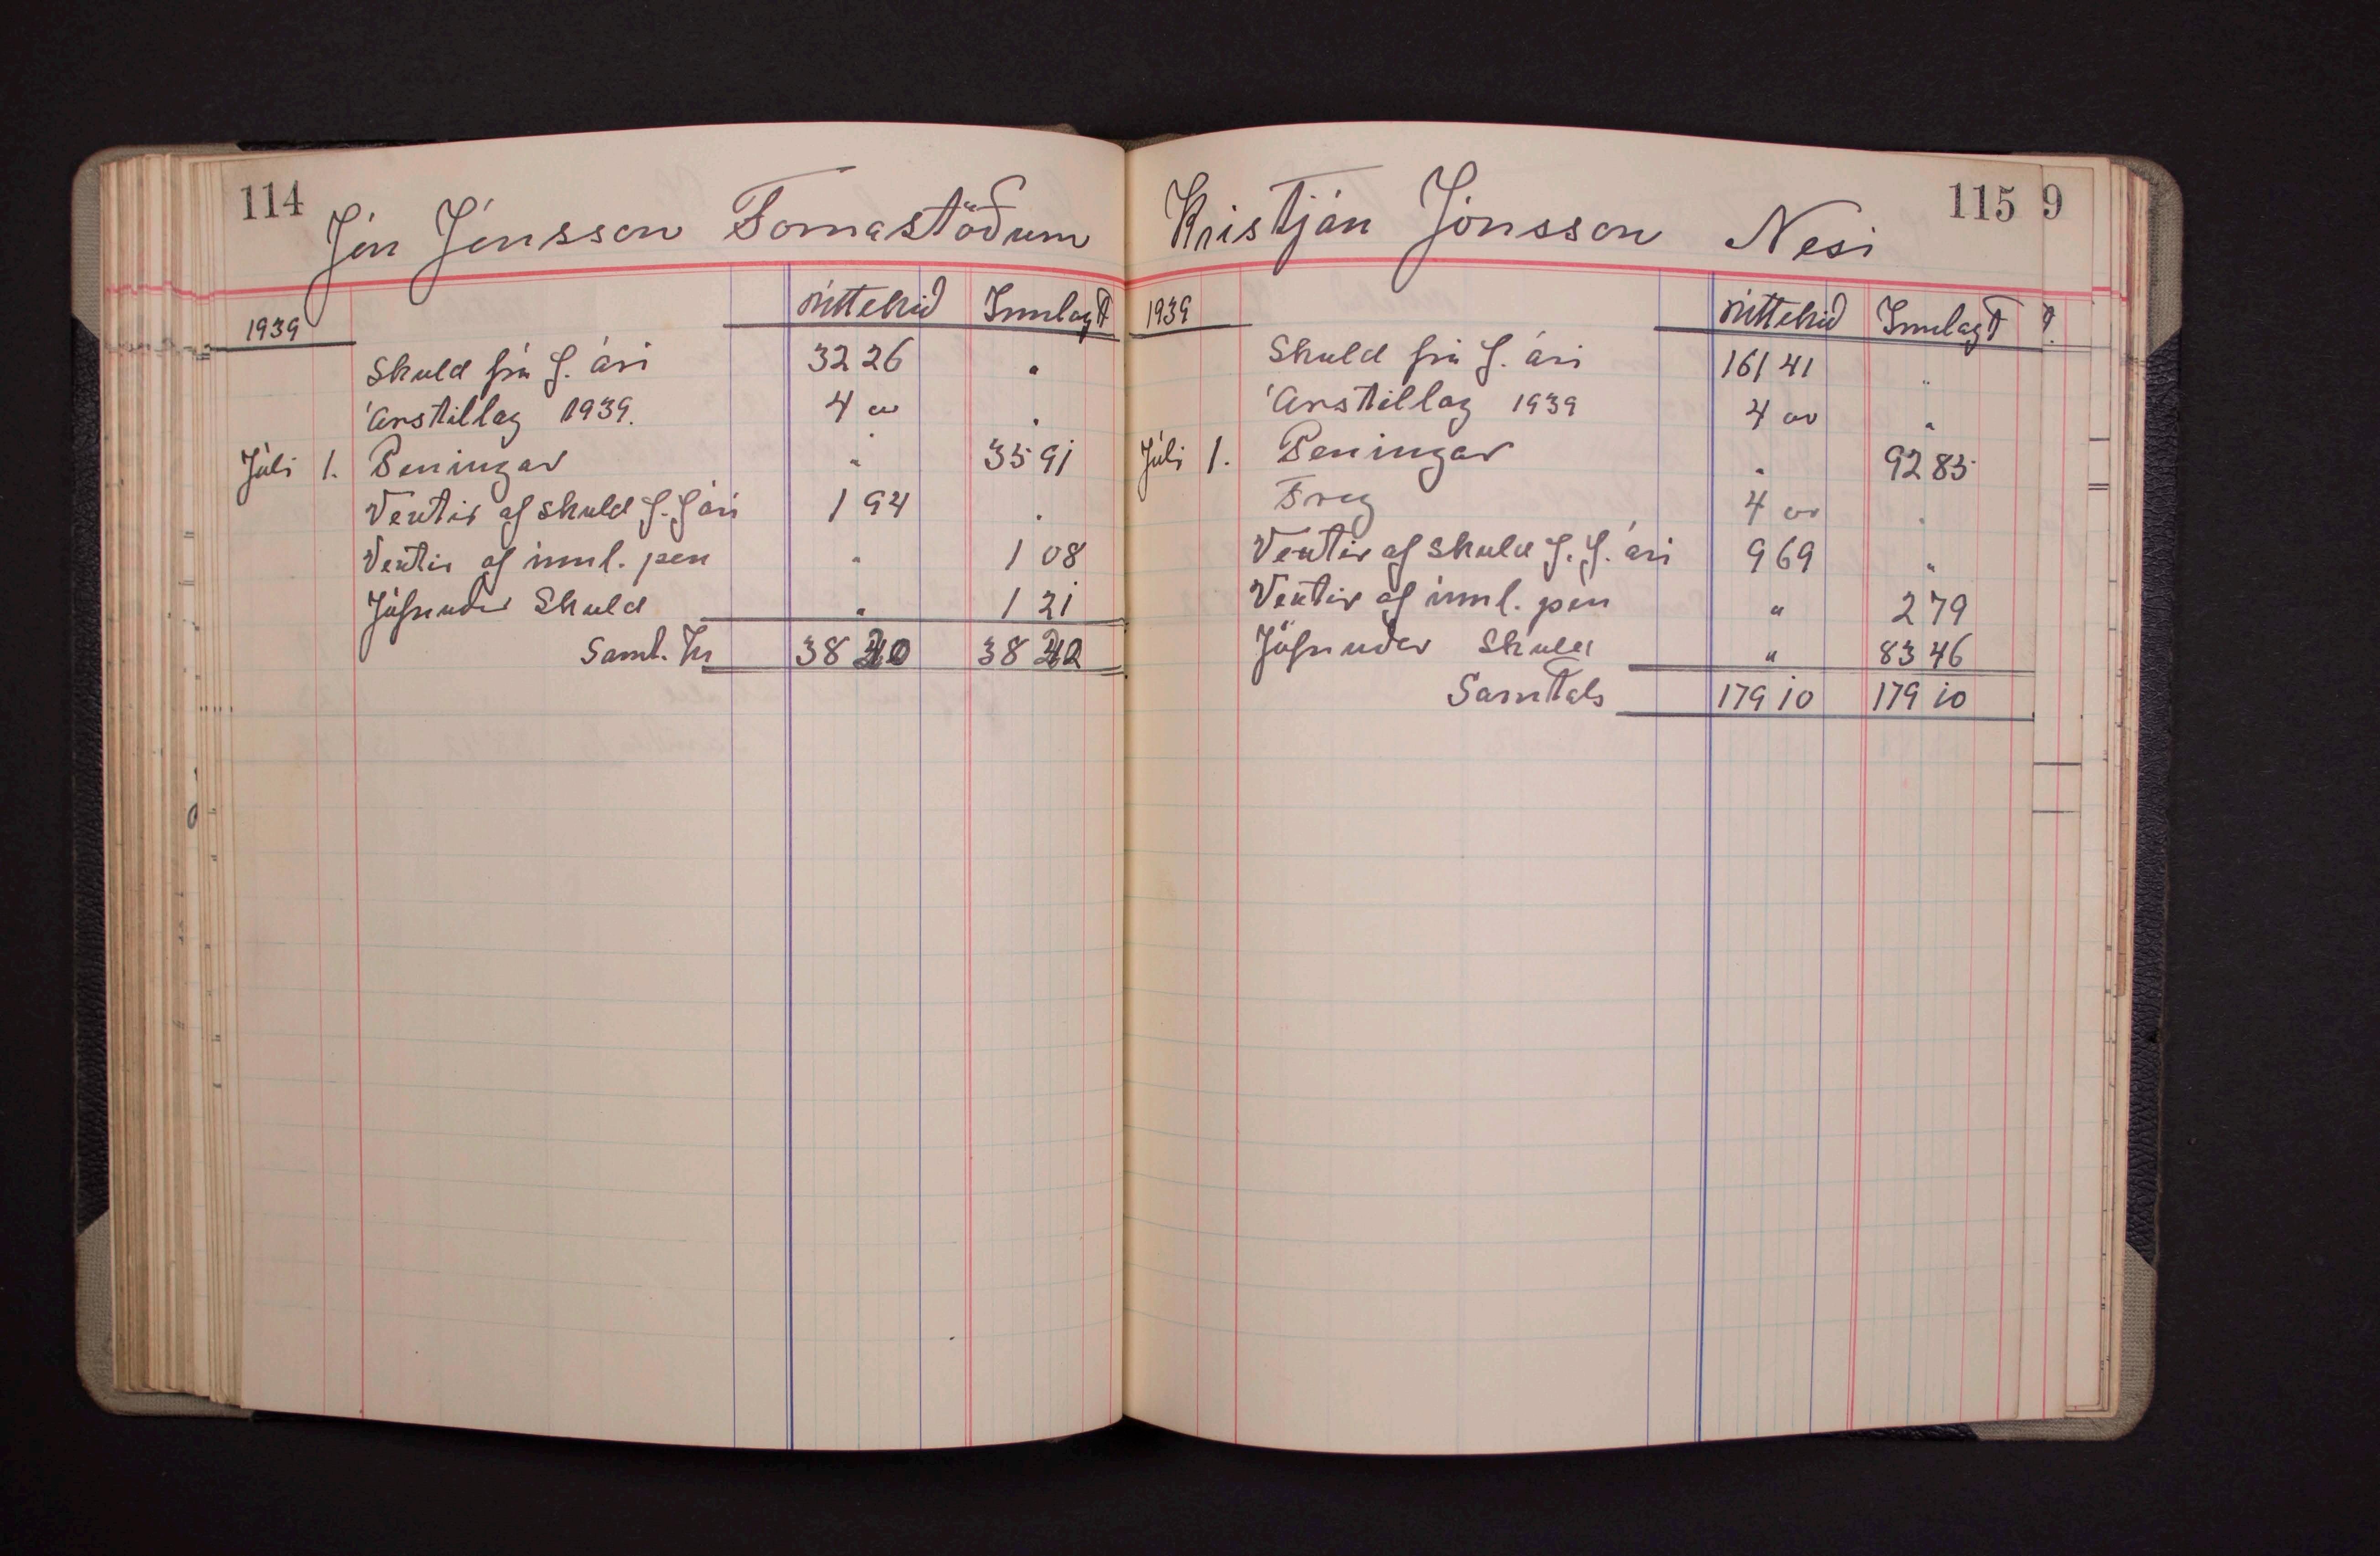 114
Jón Jónsson Tornastöðum
1939 Úttekið Innlagt
Skuld frá f. ári 32 26 "
Árstillag 1939. 4 00 "
Júli 1. Peningar " 35 91
Vextir af skuld f. f ári 1 94 "
Vextir af innl. pen " 1 08
Jöfnuður Skuld " 1 21
Saml. Kr 38 20 38 20
115 9
Kristján Jónsson Nesi
1939 Úttekið Innlagt
Skuld frá f. ári 161 41 "
Árstillag 1939 4 00 "
Júli 1. Peningar " 92 85
4 00 "
Vextir af skuld f. f. ári 9 69 "
Vextir af innl. pen " 2 79
Jöfnuður Skuld " 83 46
Samtals 179 10 179 10